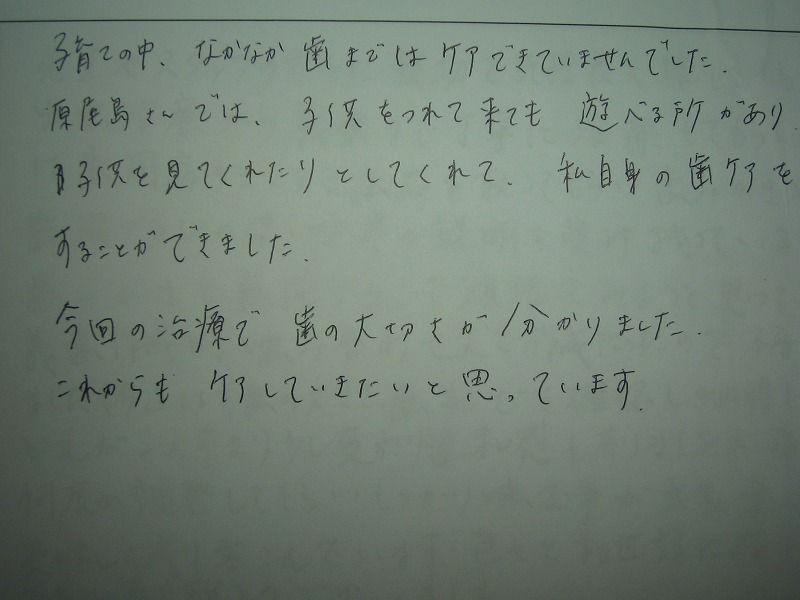 子育ての中、なかなか歯まではケアできていませんでした.
原尾島さんでは、子供をつれて来ても遊べる所があり
子供を見てくれたりとしてくれて、私自身の歯ケアを
することができました.
今回の治療で歯の大切さが分かりました.
これからもケアしていきたいと思っています.